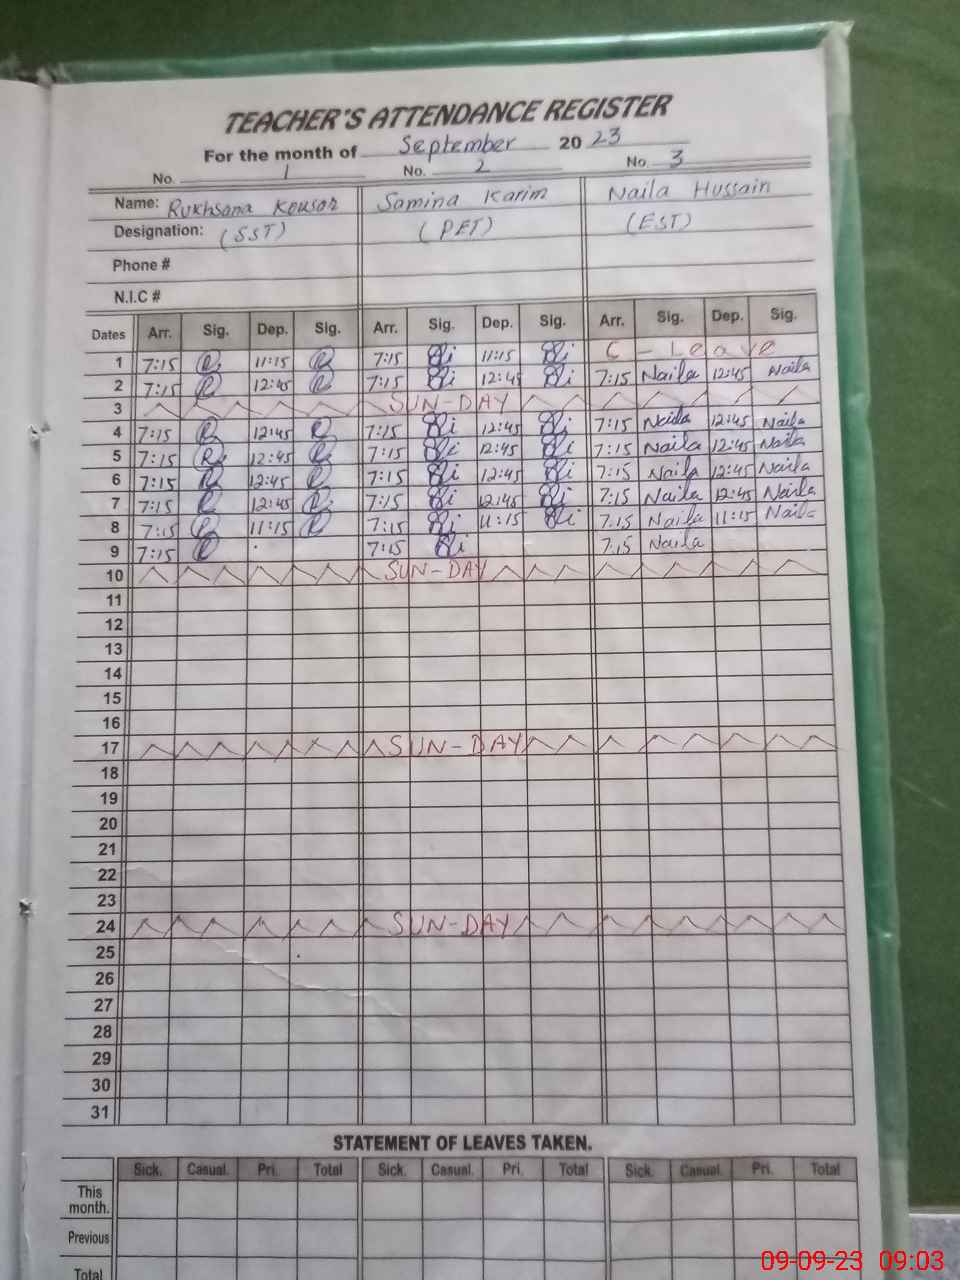 TEACHER'S ATTENDANCE REGISTER
For the month of September 20 23
No. 1 No. 2 No. 3
Name: Rukhsana Kousar Samina Karim Naila Hussain
Designation: (SST) (PET) (EST)
Phone #
N.I.C #
Dates Arr. Sig. Dep. Sig. Arr. Sig. Dep. Sig. Arr. Sig. Dep. Sig.
1 7:15 R 11:15 R 7:15 11:15 C - Leave
2 7:15 R 12:45 R 7:15 12:45 7:15 Naila 12:45 Naila
3 SUN-DAY
4 7:15 R 12:45 R 7:15 12:45 7:15 Naila 12:45 Naila
5 7:15 R 12:45 R 7:15 12:45 7:15 Naila 12:45 Naila
6 7:15 R 12:45 R 7:15 12:45 7:15 Naila 12:45 Naila
7 7:15 R 12:45 R 7:15 12:45 7:15 Naila 12:45 Naila
8 7:15 R 11:15 R 7:15 11:15 7:15 Naila 11:15 Naila
9 7:15 R 7:15 7:15 Naila
10 SUN-DAY
11
12
13
14
15
16
17 SUN-DAY
18
19
20
21
22
23
24 SUN-DAY
25
26
27
28
29
30
31
STATEMENT OF LEAVES TAKEN.
Sick. Casual. Pri. Total Sick. Casual. Pri. Total Sick. Casual. Pri. Total
This
month.
Previous
Total
09-09-23 09:03